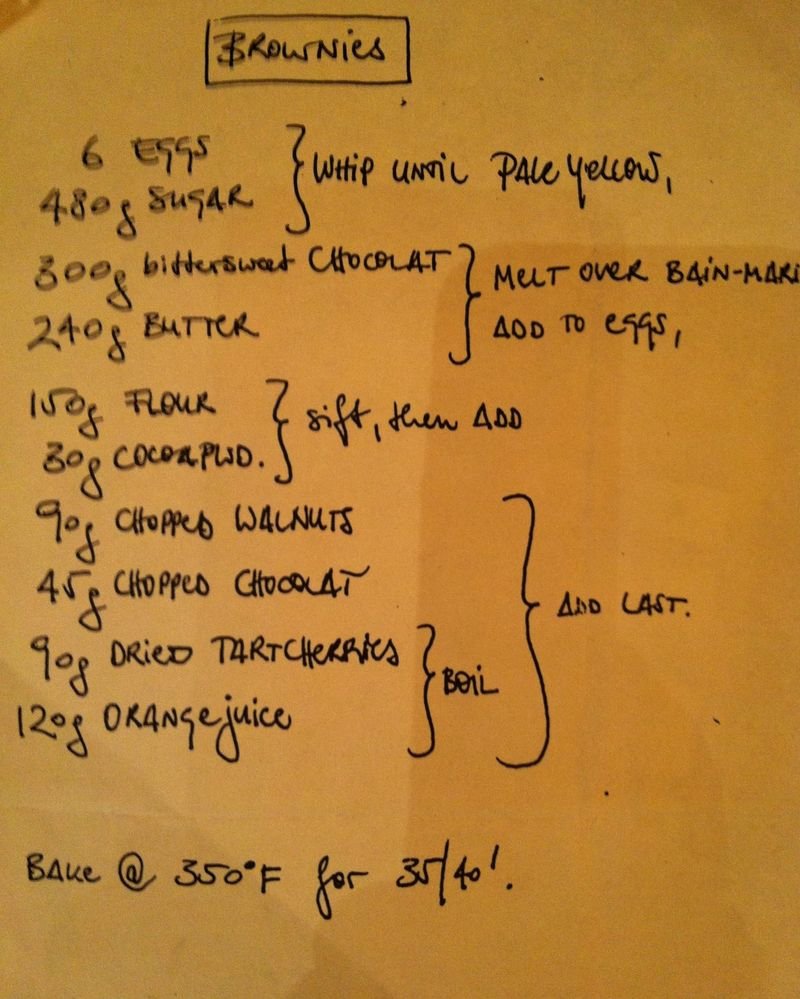 BROWNIES
6 EGGS
480g SUGAR
WHIP UNTIL PALE YELLOW,
300g bittersweet CHOCOLAT
240g BUTTER
MELT OVER BAIN-MARI
ADD TO EGGS,
150g FLOUR
30g COCOA PWD.
sift, then ADD
90g CHOPPED WALNUTS
45g CHOPPED CHOCOLAT
90g DRIED TART CHERRIES
120g ORANGE juice
BOIL
ADD LAST.
BAKE @ 350°F for 35/40'.